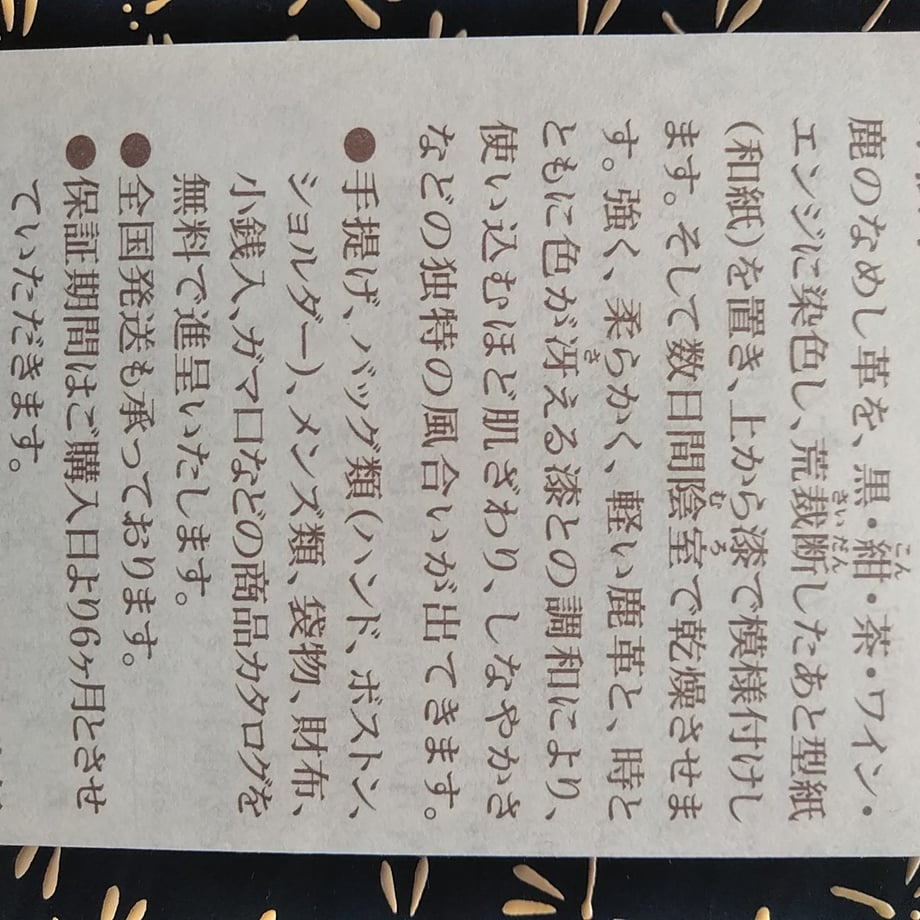 鹿のなめし革を、黒・紺・茶・ワイン・
エンジに染色し、荒裁断したあと型紙
(和紙)を置き、上から漆で模様付けし
ます。そして数日間陰室で乾燥させま
す。強く、柔らかく、軽い鹿革と、時と
ともに色が冴える漆との調和により、
使い込むほど肌ざわり、しなやかさ
などの独特の風合いが出てきます。
●手提げ、バッグ類(ハンド、ボストン、
ショルダー)、メンズ類、袋物、財布、
小銭入、ガマ口などの商品カタログを
無料で進呈いたします。
●全国発送も承っております。
●保証期間はご購入日より6ヶ月とさせ
ていただきます。